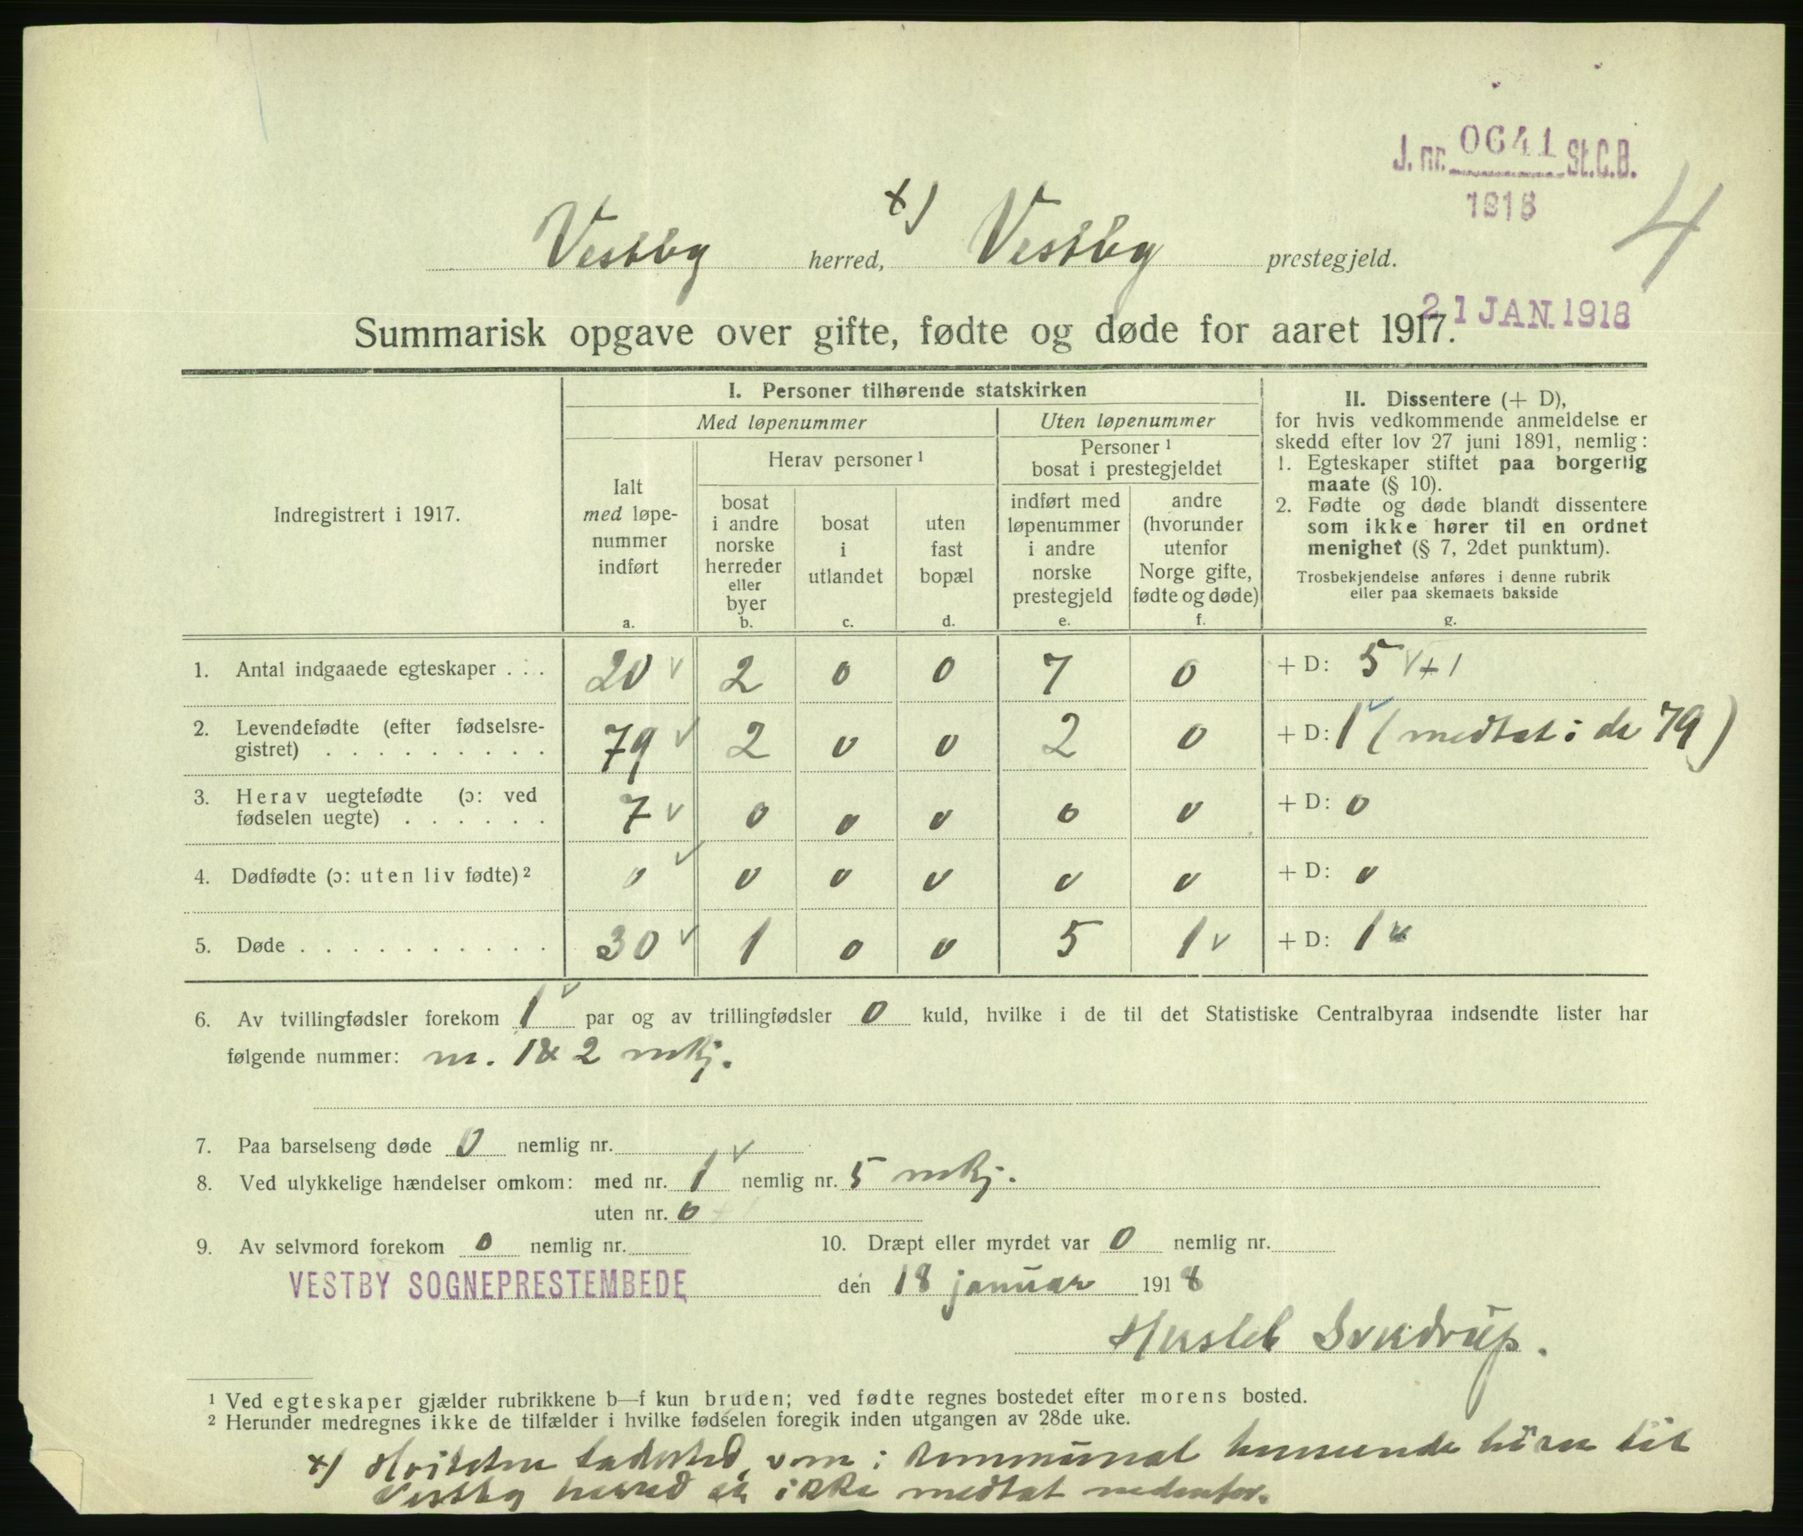 J. nr. 0641 St.C.B.
1918
4
Vestby herred, x) Vestby prestegjeld.
21 JAN. 1918
Summarisk opgave over gifte, fødte og døde for aaret 1917.
Indregistrert i 1917.
I. Personer tilhørende statskirken
Med løpenummer
Uten løpenummer
Ialt
med løpe-
nummer
indført
a.
Herav personer ¹
bosat
i andre
norske
herreder
eller
byer
b.
bosat
i
utlandet
c.
uten
fast
bopæl
d.
Personer ¹
bosat i prestegjeldet
indført med
løpenummer
i andre
norske
prestegjeld
e.
andre
(hvorunder
utenfor
Norge gifte,
fødte og døde)
f.
II. Dissentere (+ D),
for hvis vedkommende anmeldelse er
skedd efter lov 27 juni 1891, nemlig:
1. Egteskaper stiftet paa borgerlig
maate (§ 10).
2. Fødte og døde blandt dissentere
som ikke hører til en ordnet
menighet (§ 7, 2det punktum).
Trosbekjendelse anføres i denne rubrik
eller paa skemaets bakside
g.
1. Antal indgaaede egteskaper . . . 20 v 2 0 0 7 0 + D: 5 v + 1
2. Levendefødte (efter fødselsre-
gistret) . . . . . . . . . 79 v 2 0 0 2 0 + D: 1 v (medtat i de 79)
3. Herav uegtefødte (ɔ: ved
fødselen uegte) . . . . . . 7 v 0 0 0 0 0 + D: 0
4. Dødfødte (ɔ: uten liv fødte) ² 0 v 0 0 0 0 0 + D: 0
5. Døde . . . . . . . . . . 30 v 1 0 0 5 1 v + D: 1 v
6. Av tvillingfødsler forekom 1 v par og av trillingfødsler 0 kuld, hvilke i de til det Statistiske Centralbyraa indsendte lister har
følgende nummer: nr. 1 & 2 mkj.
7. Paa barselseng døde 0 nemlig nr.
8. Ved ulykkelige hændelser omkom: med nr. 1 v nemlig nr. 5 mkj.
uten nr. 0 + 1
9. Av selvmord forekom 0 nemlig nr. 10. Dræpt eller myrdet var 0 nemlig nr.
VESTBY SOGNEPRESTEMBEDE den 18 januar 1918
¹ Ved egteskaper gjælder rubrikkene b—f kun bruden; ved fødte regnes bostedet efter morens bosted.
² Herunder medregnes ikke de tilfælder i hvilke fødselen foregik inden utgangen av 28de uke.
x) Hvitsten ladested, som i kommunal henseende hører til
Vestby herred er ikke medtat nedenfor.